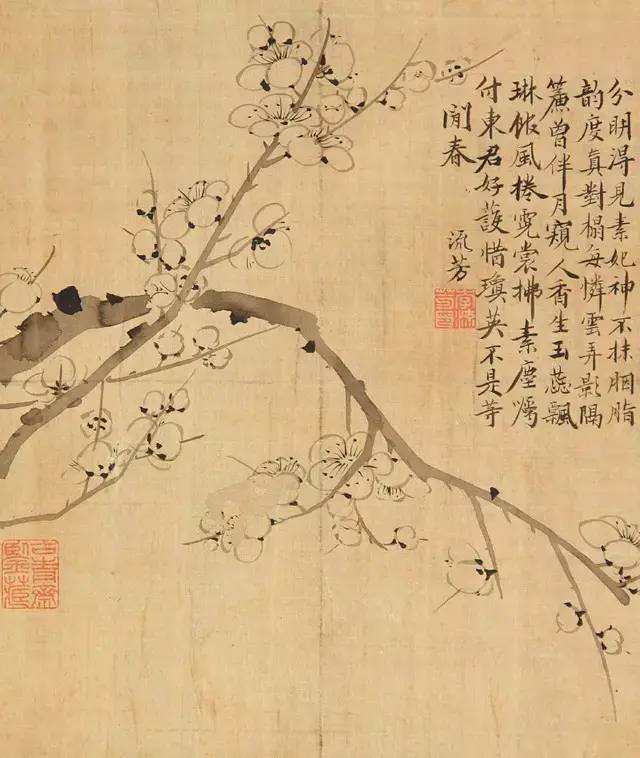 分明得見素妃神不抹胭脂
韵度真對榻每憐雲弄影隔
簾曾伴月窺人香生玉蕊飄
琳舘風捲霓裳拂素塵嘱
付東君好護惜瓊英不是等
閒春
流芳
李流芳印